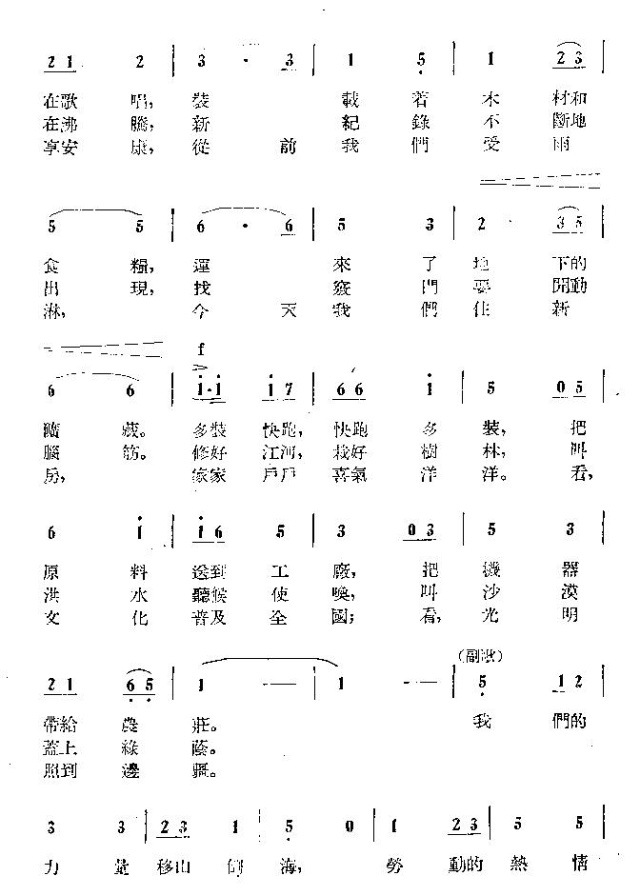 2 1 2 | 3 · 3 | 1 5 | 1 2 3 |
在歌 唱, 裝 載 着 木 材和
在沸 騰, 新 紀 錄 不 斷地
享安 康, 從 前 我 們 受 雨
5 5 | 6 · 6 | 5 3 | 2 · 3 5 |
食 糧, 運 來 了 地 下的
出 現, 找 竅 門 要 開動
淋, 今 天 我 們 住 新
f
6 6 | 1·1 1 7 | 6 6 1 | 5 0 5 |
礦 藏。 多裝 快跑, 快跑 多 裝, 把
腦 筋。 修好 江河, 栽好 樹 林, 叫
房, 家家 戶戶 喜氣 洋 洋。 看,
6 1 | 1 6 5 | 3 0 3 | 5 3
原 料 送到 工 廠, 把 機 器
洪 水 聽候 使 喚, 叫 沙 漠
文 化 普及 全 國; 看, 光 明
(副歌)
2 1 6 5 | 1 — | 1 — | 5 1 2
帶給 農 莊。 我 們的
蓋上 綠 蔭。
照到 邊 疆。
3 3 | 2 3 1 | 5 0 | 1 2 3 | 5 5 |
力 量 移山 倒 海, 勞 動的 熱 情